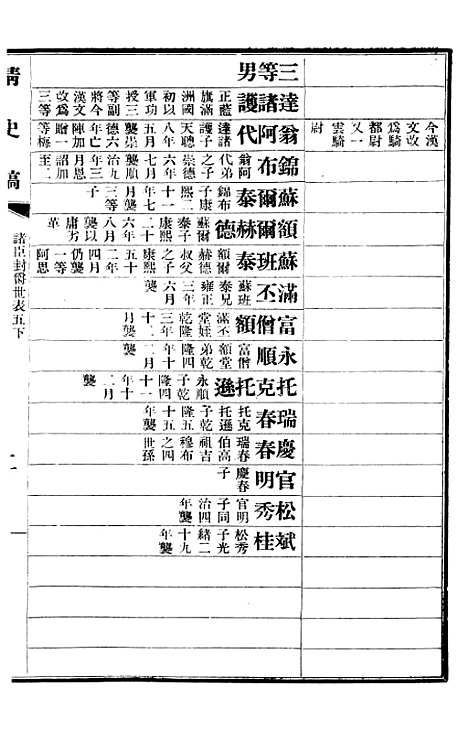 清史稿
諸臣封爵世表五下
三等男
達諸護
正藍旗滿洲國初以軍功授三等副將今漢文改爲三等
翁阿代
達諸護子天聰八年五月襲崇德六年亡陣加贈一等梅
今漢文改爲騎都尉又一雲騎尉
錦布
翁阿代弟之子崇德六年七月襲順治九年三月恩詔加至二
蘇爾泰
錦布子康熙二十一年七月襲三等子
額爾赫德
蘇爾泰子康熙二十六年八月襲以庸劣革
蘇班泰
額爾赫德叔父之子康熙五十二年四月仍襲一等阿思
滿丕
蘇班泰兄雍正三年六月襲
富僧額
滿丕堂姪乾隆三年十二月襲
永順
富僧額堂弟乾隆四年十二月襲
托克托遜
永順子乾隆四十一年十二月襲
瑞春
托克托遜子乾隆五十五年襲
慶春
瑞春伯高祖吉穆布之四世孫
官明
慶春子
松秀
官明子同治四年襲
斌桂
松秀子光緒二十九年襲